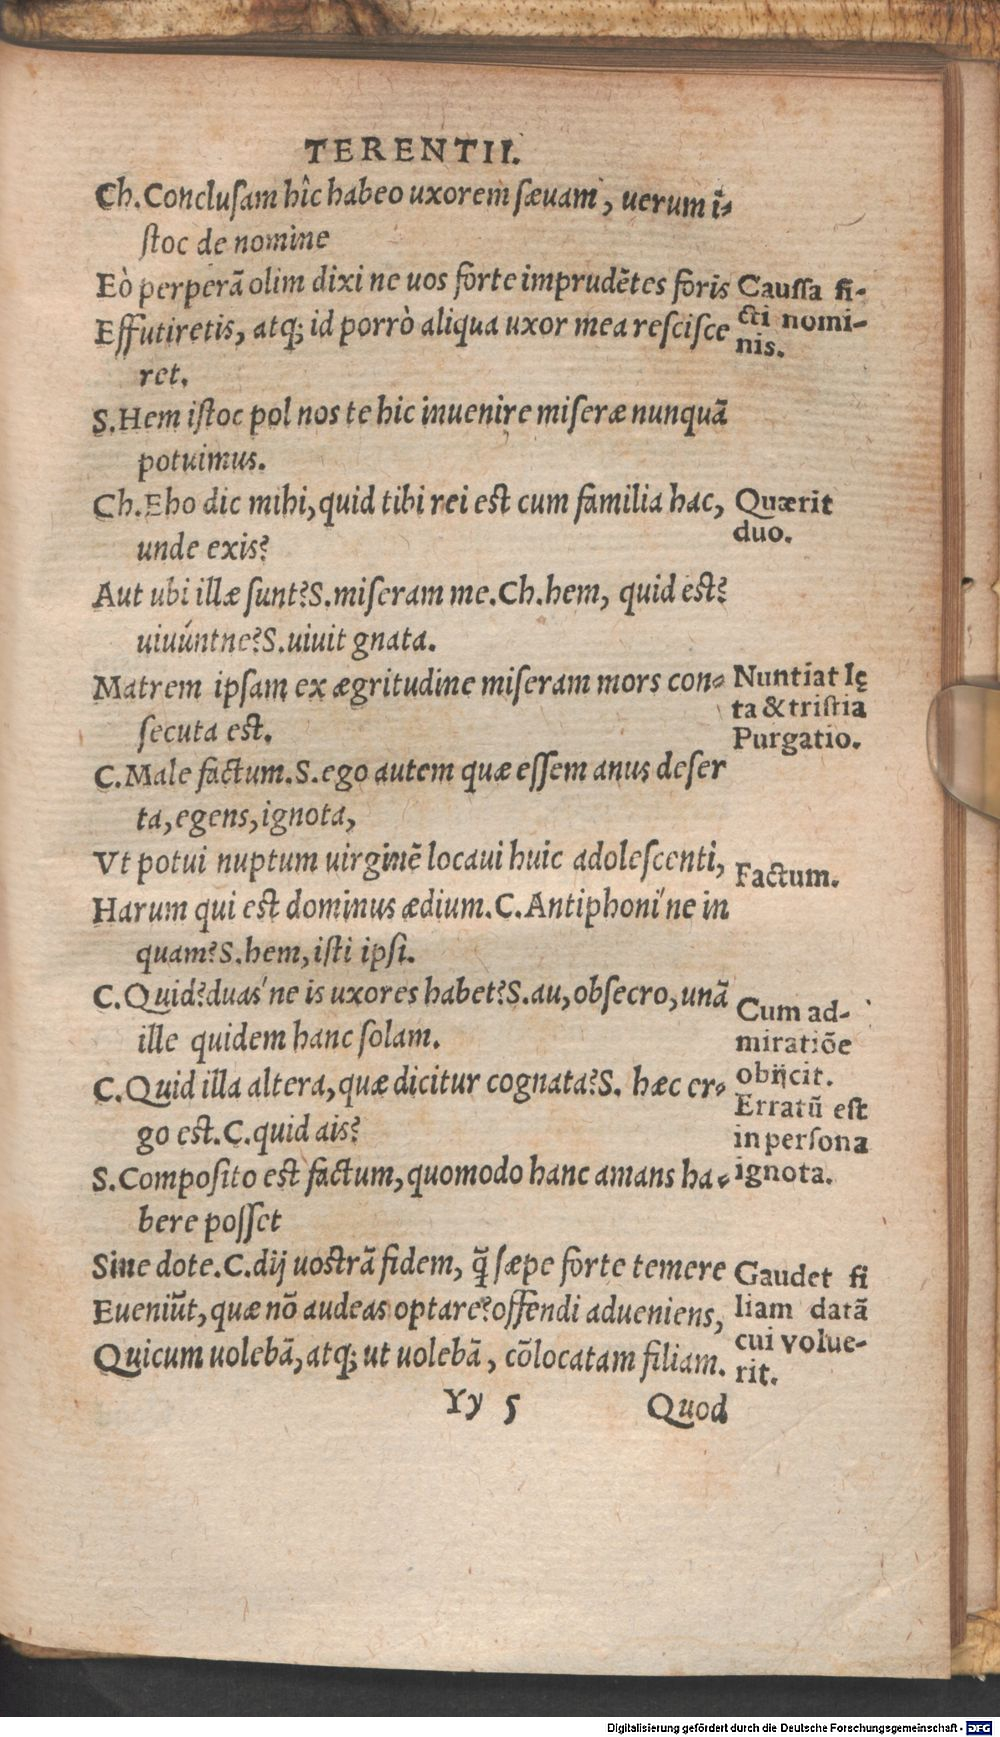 TERENTII.
Ch. Conclusam hîc habeo uxorem sævam, uerum i-
stoc de nomine
Eò perperã olim dixi ne uos forte imprudẽtes foris
Effutiretis, atq; id porrò aliqua uxor mea rescisce
ret.
Caussa fi-
cti nomi-
nis.
S. Hem istoc pol nos te hic inuenire miseræ nunquã
potuimus.
Ch. Eho dic mihi, quid tibi rei est cum familia hac,
unde exis?
Quærit
duo.
Aut ubi illæ sunt? S. miseram me. Ch. hem, quid est?
uiuúntne? S. uiuit gnata.
Matrem ipsam ex ægritudine miseram mors con-
secuta est.
Nuntiat lę
ta & tristia
Purgatio.
C. Male factum. S. ego autem quæ essem anus deser
ta, egens, ignota,
Vt potui nuptum uirginẽ locaui huic adolescenti,
Factum.
Harum qui est dominus ædium. C. Antiphoni'ne in
quam? S. hem, isti ipsi.
C. Quid? duas'ne is uxores habet? S. au, obsecro, unã
ille quidem hanc solam.
C. Quid illa altera, quæ dicitur cognata? S. hæc er-
go est. C. quid ais?
Cum ad-
miratiõe
obijcit.
Erratũ est
in persona
ignota.
S. Composito est factum, quomodo hanc amans ha-
bere posset
Sine dote. C. dij uostrã fidem, q̃ sæpe forte temere
Eueniũt, quæ nõ audeas optare? offendi adueniens,
Quicum uolebã, atq; ut uolebã, cõlocatam filiam.
Gaudet fi
liam datã
cui volue-
rit.
Yy 5
Quod
Digitalisierung gefördert durch die Deutsche Forschungsgemeinschaft - DFG